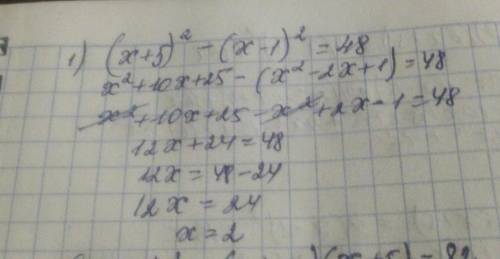 1) (x+5)² - (x-1)² = 48
x²+10x+25 - (x²-2x+1) = 48
x²+10x+25-x²+2x-1=48
12x+24=48
12x = 48-24
12x = 24
x=2
)(x+5) = 82